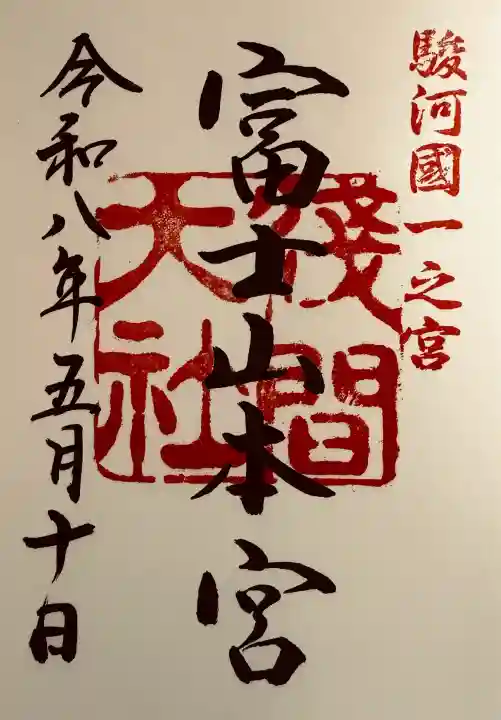 駿河國一之宮
富士山本宮
淺間
天社
令和八年五月十日